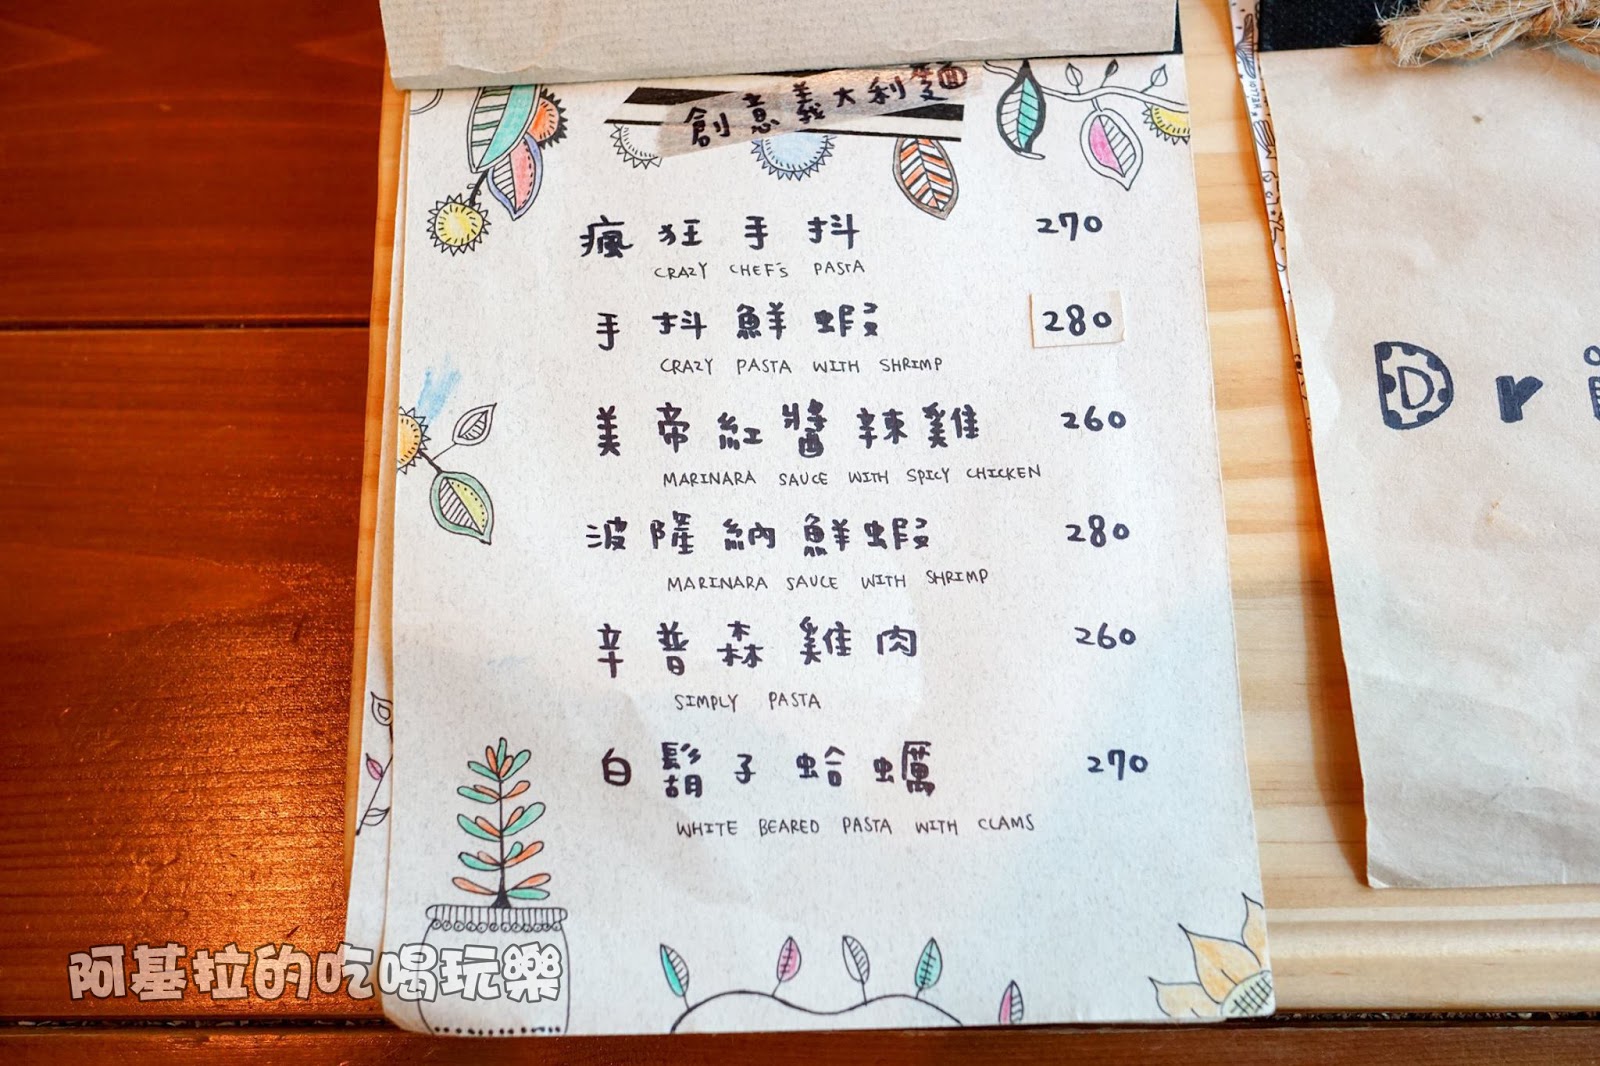 創意義大利麵
瘋狂手抖 270
CRAZY CHEF'S PASTA
手抖鮮蝦 280
CRAZY PASTA WITH SHRIMP
美帝紅醬辣雞 260
MARINARA SAUCE WITH SPICY CHICKEN
波隆納鮮蝦 280
MARINARA SAUCE WITH SHRIMP
辛普森雞肉 260
SIMPLY PASTA
白鬍子蛤蠣 270
WHITE BEARED PASTA WITH CLAMS
Dri
阿基拉的吃喝玩樂